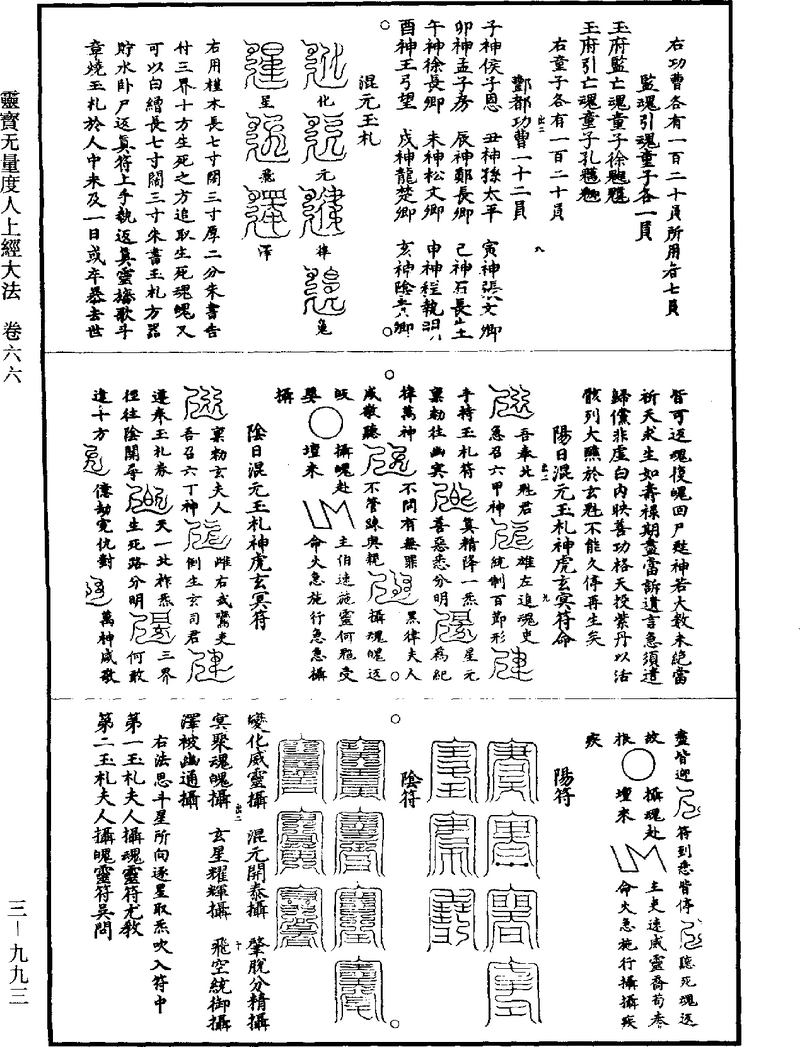 右功曹各有一百二十員所用各七員
監魂引魂童子各一員
玉府監亡魂童子徐
玉府引亡魂童子孔
右童子各有一百二十員
酆都功曹一十二員
子神侯子恩　丑神孫太平　寅神張文卿
卯神孟子房　辰神鄭長卿　巳神石長
午神徐長卿　未神松文卿　申神程執
酉神王弓望　戌神龍楚卿　亥神陰
混元玉札
化　元　律　冤
星　炁　澤
右用槿木長七寸闊三寸厚二分朱書告
付三界十方生死之方追取生死魂魄又
可以白繒長七寸闊三寸朱書玉札方器
貯水卧尸返真符上手執返真靈旛歌斗
章燒玉札於人中未及一日或卒暴去世
皆可返魂復魄回尸起神若大數未絕當
祈天求生如壽祿期盡當訴遺言急須遣
歸儻非虛白內映善功格天投紫丹以活
骸列大醮於玄壇不能久停再生矣
陽日混元玉札神虎玄冥符命
吾奉北魁君　雄左追魂吏
急召六甲神　統制百節形
手持玉札符　真精降一炁　星元
稟勑往幽冥　善惡悉分明　為紀
律萬神　不問有無罪　黑律夫人
咸敬聽　不管踈與親　攝魂魄返
攝魄赴　主伯速施靈何雅受
壇來　命火急施行急急攝
攝
陰日混元玉札神虎玄冥符
稟勑玄夫人　雌右武賁吏
吾召六丁神　制生玄司君
遵奉玉札券　天一北祚炁　三界
徑往陰關尋　生死路分明　何敢
違十方　億劫冤仇對　萬神咸敬
盡皆迎　符到悉皆停　聽死魂返
故　攝魂赴　主吏速威靈
根　壇來　命火急施行攝攝疾
疾
陽符
陰符
變化威靈攝　混元開泰攝　肇脫分精攝
冥聚魂魄攝　玄星耀輝攝　飛空統御攝
澤被幽通攝
右法思斗星所向逐星取炁吹入符中
第一玉札夫人攝魂靈符尤教
第二玉札夫人攝魄靈符吳問
靈寶无量度人上經大法　卷六六
三－九九三